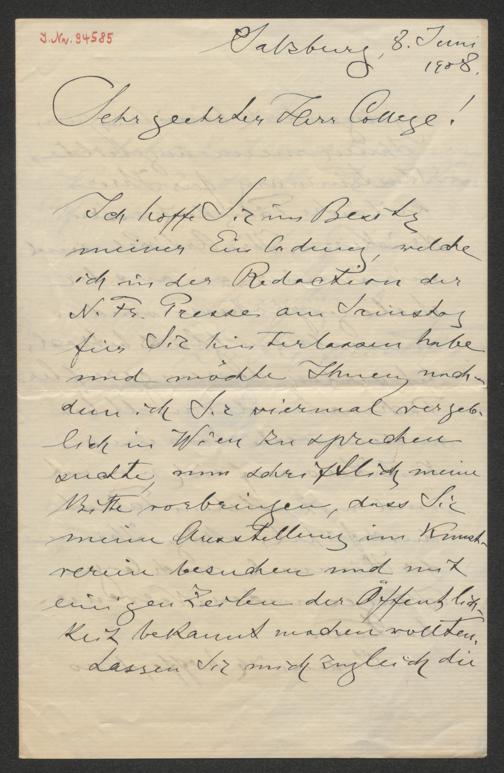 J. Nr. 94585
Salzburg, 8. Juni
1908.
Sehr geehrter Herr College!
Ich hoffe Sie im Besitz
meiner Einladung, welche
ich in der Redaction der
N. Fr. Presse am Samstag
für Sie hinterlassen habe
und möchte Ihnen, nach-
dem ich Sie viermal vergeb-
lich in Wien zu sprechen
suchte, nun schriftlich meine
Bitte vorbringen, dass Sie
meine Ausstellung im Kunst-
verein besuchen und mit
einigen Zeilen der Öffentlich-
keit bekannt machen wollten.
Lassen Sie mich zugleich die